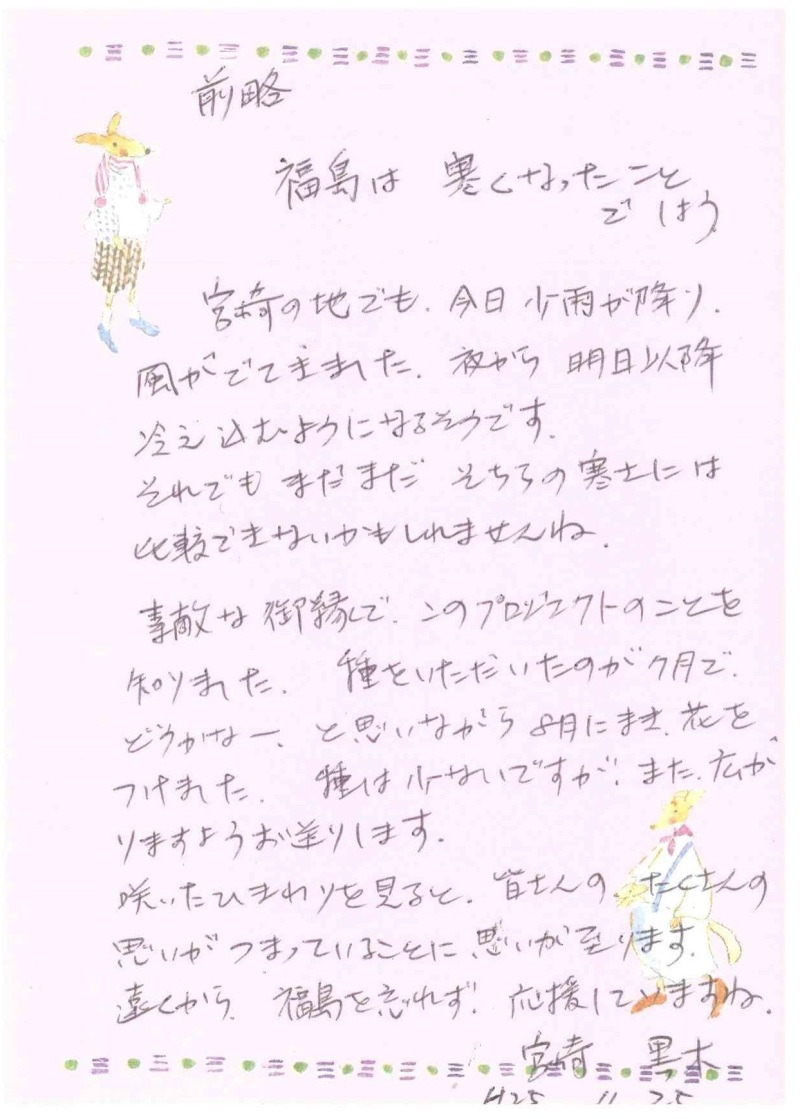 前略
福島は 寒くなったこと
でしょう
宮崎の地でも、今日 小雨が降り、
風がでてきました。夜から 明日以降
冷え込むようになるそうです。
それでも まだまだ そちらの寒さには
比較できないかもしれませんね。
素敵な御縁で、このプロジェクトのことを
知りました。 種をいただいたのが7月で、
どうかなー、と思いながら 8月にまき、花を
つけました。 種は少ないですが、また、広が
りますようお送りします。
咲いたひまわりを見ると、皆さんの たくさんの
思いが つまっていることに 思いが至ります。
遠くから、福島を忘れず、応援していますね。
宮崎 黒木
H25 11 25